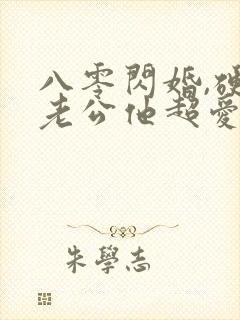 八零閃婚,硬
老公他超愛
朱學志